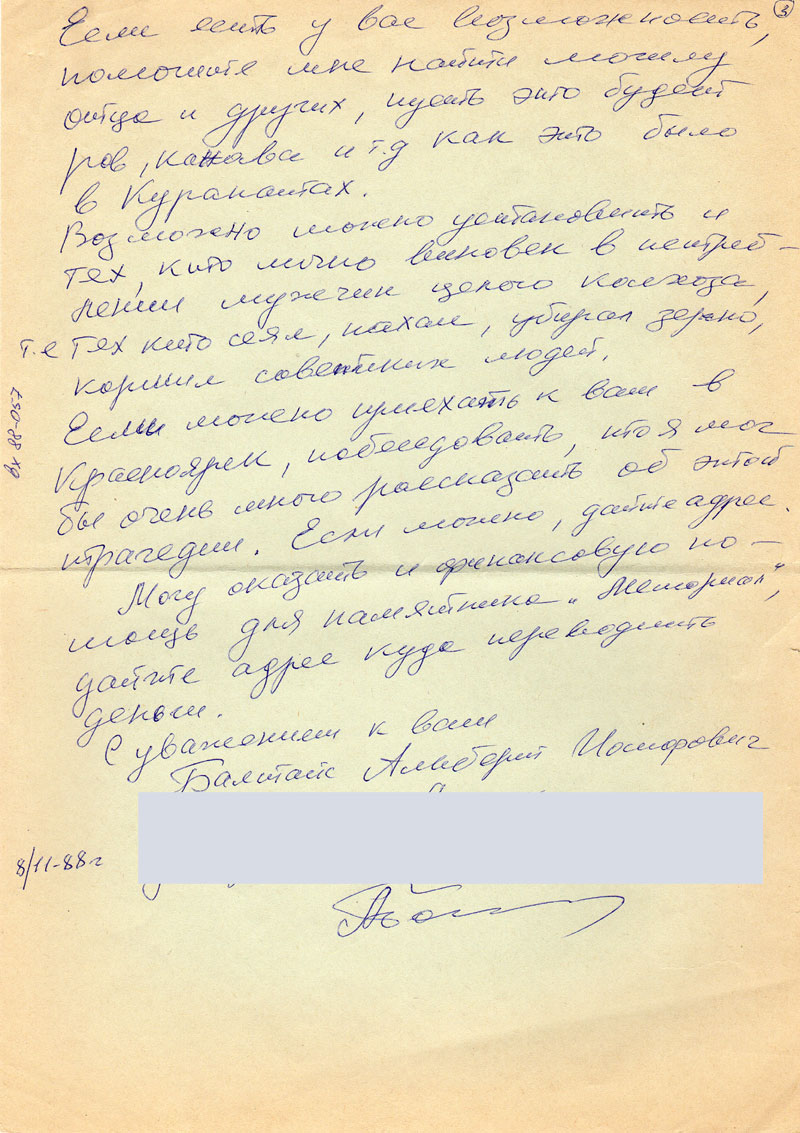 3
Если есть у вас возможность,
помогите мне найти могилу
отца и других, пусть это будет
ров, канава и т.д как это было
в Курапатах.
Возможно можно установить и
тех, кто лично виновен в истреб-
лении мужчин целого колхоза,
т.е тех кто сеял, пахал, убирал зерно,
кормил советских людей.
Если можно приехать к вам в
Красноярск, побеседовать, то я мог
бы очень много рассказать об этой
трагедии. Если можно, дайте адрес.
Могу оказать и финансовую по-
мощь для памятника „Мемориал",
дайте адрес куда переводить
деньги.
С уважением к вам
Альберт Иосифович
8/11-88г
Вх 88-057